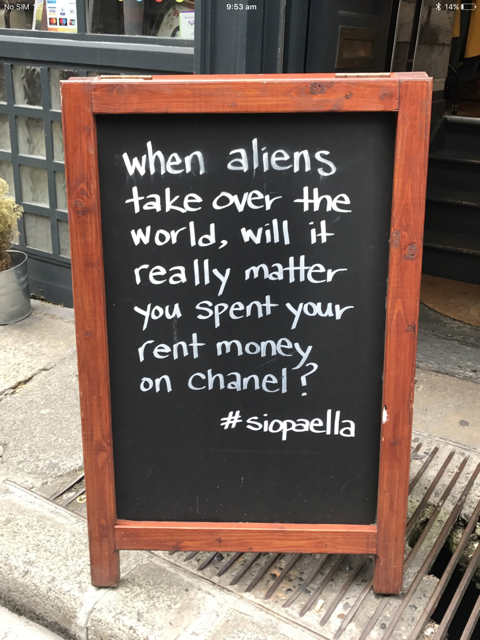 No SIM
9:53 am
14%
when aliens
take over the
world, will it
really matter
you spent your
rent money
on chanel?
#siopaella